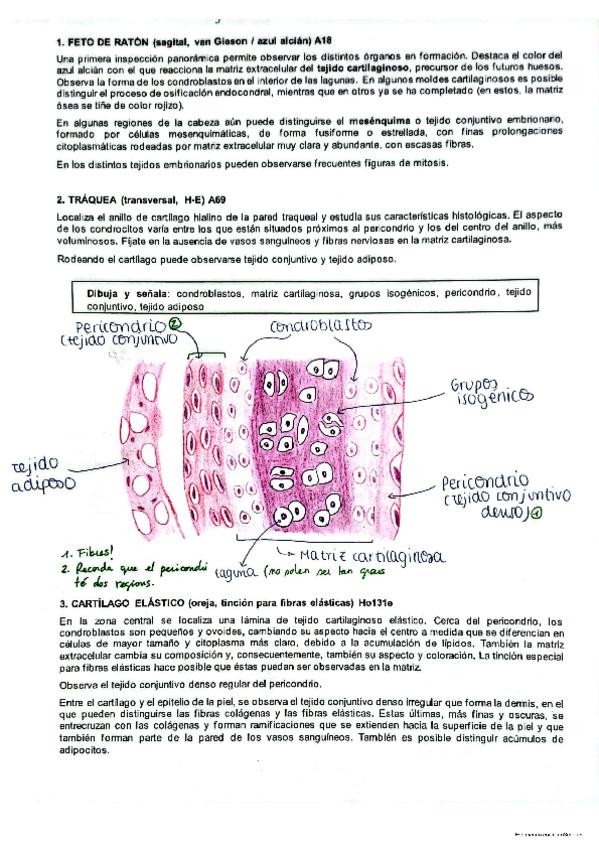 1. FETO DE RATÓN (sagital, van Gieson / azul alcián) A18
Una primera inspección panorámica permite observar los distintos órganos en formación. Destaca el color del
azul alcián con el que reacciona la matriz extracelular del tejido cartilaginoso, precursor de los futuros huesos.
Observa la forma de los condroblastos en el interior de las lagunas. En algunos moldes cartilaginosos es posible
distinguir el proceso de osificación endocondral, mientras que en otros ya se ha completado (en estos, la matriz
ósea se tiñe de color rojizo).
En algunas regiones de la cabeza aún puede distinguirse el mesénquima o tejido conjuntivo embrionario,
formado por células mesenquimáticas, de forma fusiforme o estrellada, con finas prolongaciones
citoplasmáticas rodeadas por matriz extracelular muy clara y abundante, con escasas fibras.
En los distintos tejidos embrionarios pueden observarse frecuentes figuras de mitosis.
2. TRÁQUEA (transversal, H-E) A69
Localiza el anillo de cartílago hialino de la pared traqueal y estudia sus características histológicas. El aspecto
de los condrocitos varía entre los que están situados próximos al pericondrio y los del centro del anillo, más
voluminosos. Fíjate en la ausencia de vasos sanguíneos y fibras nerviosas en la matriz cartilaginosa.
Rodeando el cartílago puede observarse tejido conjuntivo y tejido adiposo.
Dibuja y señala: condroblastos, matriz cartilaginosa, grupos isogénicos, pericondrio, tejido
conjuntivo, tejido adiposo
Pericondrio 2
(tejido conjuntivo
condroblastos
Grupos
isogénicos
tejido
adiposo
Pericondrio
(tejido conjuntivo
denso) 1
Matriz cartilaginosa
laguna (no solen ser tan grans
1. Fibres!
2. Recorda que el pericondri
té dos regions.
3. CARTÍLAGO ELÁSTICO (oreja, tinción para fibras elásticas) Ho131e
En la zona central se localiza una lámina de tejido cartilaginoso elástico. Cerca del pericondrio, los
condroblastos son pequeños y ovoides, cambiando su aspecto hacia el centro a medida que se diferencian en
células de mayor tamaño y citoplasma más claro, debido a la acumulación de lípidos. También la matriz
extracelular cambia su composición y, consecuentemente, también su aspecto y coloración. La tinción especial
para fibras elásticas hace posible que éstas puedan ser observadas en la matriz.
Observa el tejido conjuntivo denso regular del pericondrio.
Entre el cartílago y el epitelio de la piel, se observa el tejido conjuntivo denso irregular que forma la dermis, en el
que pueden distinguirse las fibras colágenas y las fibras elásticas. Estas últimas, más finas y oscuras, se
entrecruzan con las colágenas y forman ramificaciones que se extienden hacia la superficie de la piel y que
también forman parte de la pared de los vasos sanguíneos. También es posible distinguir acúmulos de
adipocitos.